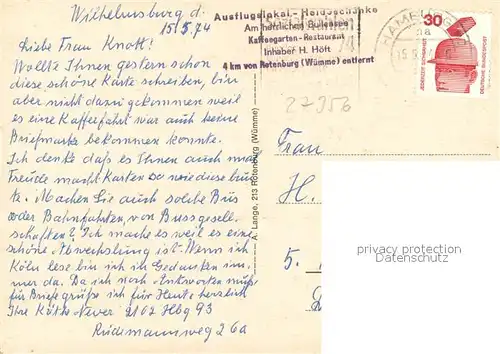 Wilhelmsburg d.
15.5.74
Liebe Frau Knott!
Wollte Ihnen gestern schon
diese schöne Karte schreiben, bin
aber nicht dazu gekommen weil
es eine Kaffeefahrt war auch keine
Briefmarke bekommen konnte.
Ich denke daß es Ihnen auch mal
Freude macht Karten so wie diese
Machen Sie auch solche Bus
oder Bahnfahrten, von Bussgesell-
schaften? Ich mache es weil es eine
schöne Abwechslung ist. Wenn ich
Köln lese bin ich in Gedanken im-
mer da. Da ich noch Antworten muß
für Briefe grüße ich für Heute herzlich
Ihre Käthe Never 2102 Hbg 93
Rüdemannweg 26a
Ausflugslokal - Heidschänke
Am herrlichen Bullensee
Kaffeegarten - Restaurant
Inhaber H. Höft
4 km von Rotenburg (Wümme) entfernt
A. Lange, 213 Rotenburg (Wümme)
HAMBURG
na
15.5.
30
JEDERZEIT SICHERHEIT
DEUTSCHE BUNDESPOST
27356
Frau
H.
5.
privacy protection
Datenschutz